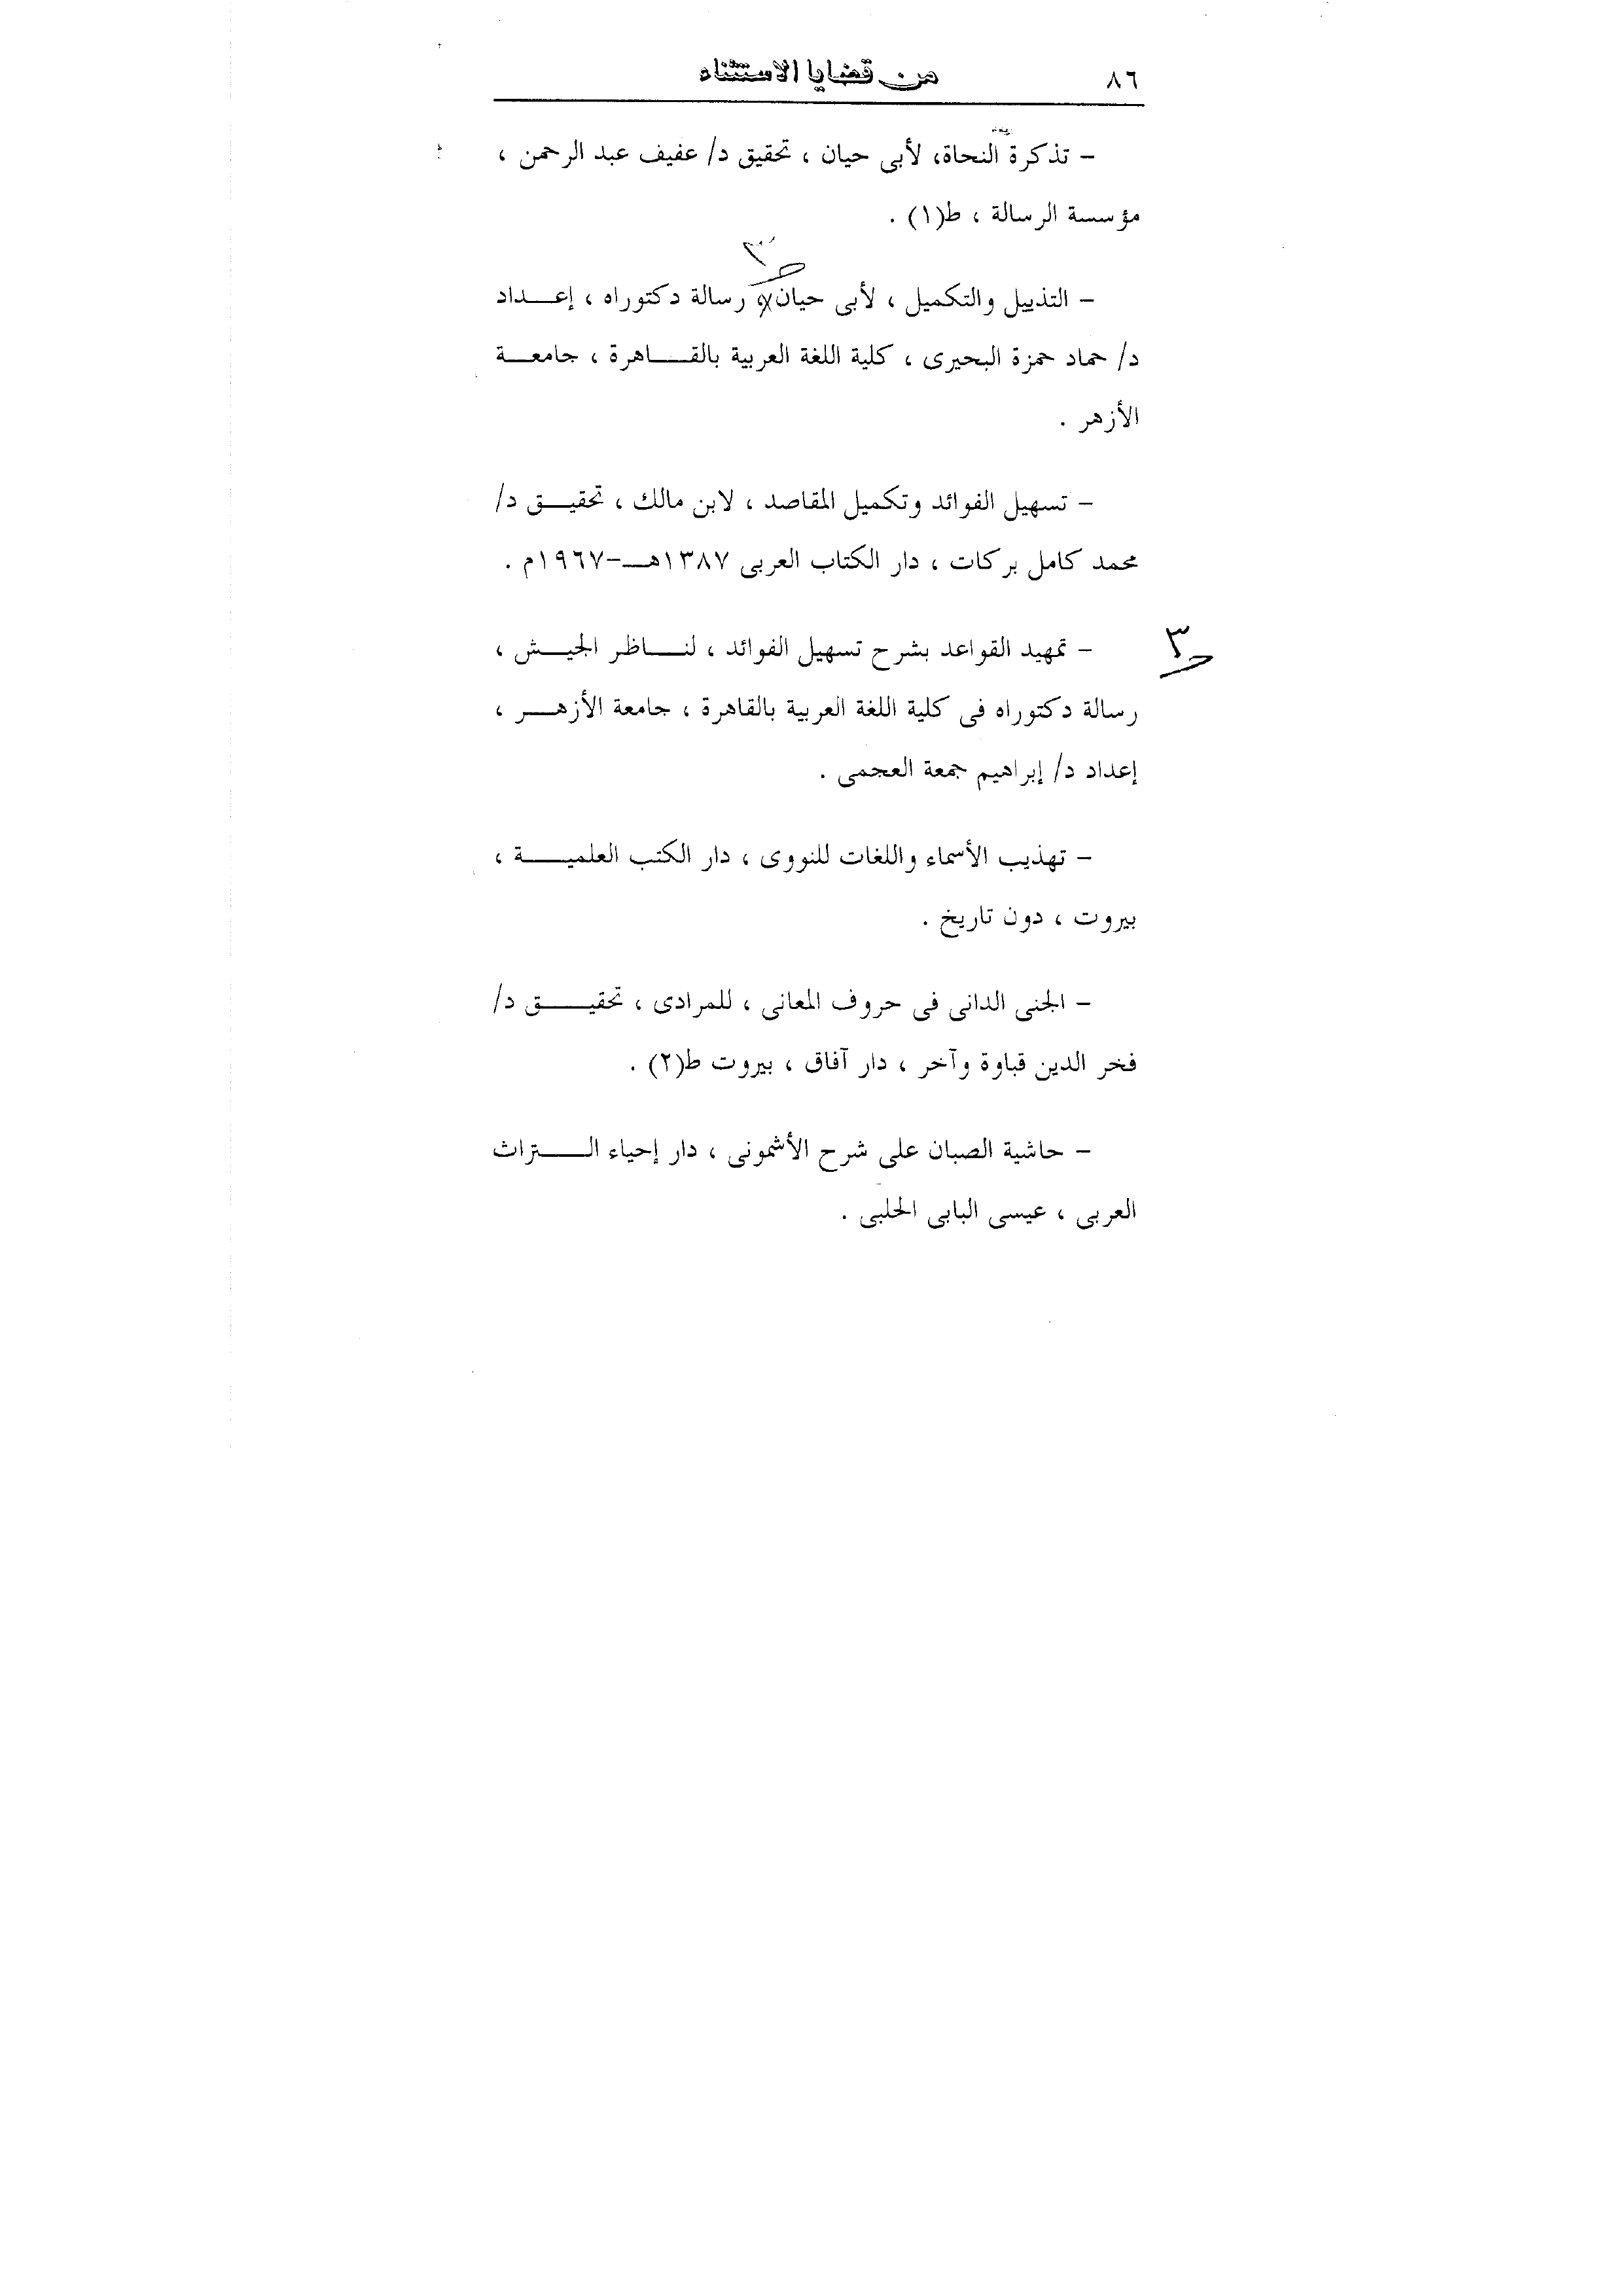 ٨٦ من قضايا الاستثناء
– تذكرة النحاة، لأبى حيان ، تحقيق د/ عفيف عبد الرحمن ،
مؤسسة الرسالة ، ط(١) .
حـ٣
– التذييل والتكميل ، لأبى حيان ، رسالة دكتوراه ، إعـــداد
د/ حماد حمزة البحيرى ، كلية اللغة العربية بالقـــاهرة ، جامعـــة
الأزهر .
– تسهيل الفوائد وتكميل المقاصد ، لابن مالك ، تحقيـــق د/
محمد كامل بركات ، دار الكتاب العربى ١٣٨٧هـــ–١٩٦٧م .
حـ٣
– تمهيد القواعد بشرح تسهيل الفوائد ، لنـــاظر الجيـــش ،
رسالة دكتوراه فى كلية اللغة العربية بالقاهرة ، جامعة الأزهـــر ،
إعداد د/ إبراهيم جمعة العجمى .
– تهذيب الأسماء واللغات للنووى ، دار الكتب العلميـــة ،
بيروت ، دون تاريخ .
– الجنى الدانى فى حروف المعانى ، للمرادى ، تحقيـــق د/
فخر الدين قباوة وآخر ، دار آفاق ، بيروت ط(٢) .
– حاشية الصبان على شرح الأشمونى ، دار إحياء الـــتراث
العربى ، عيسى البابى الحلبى .